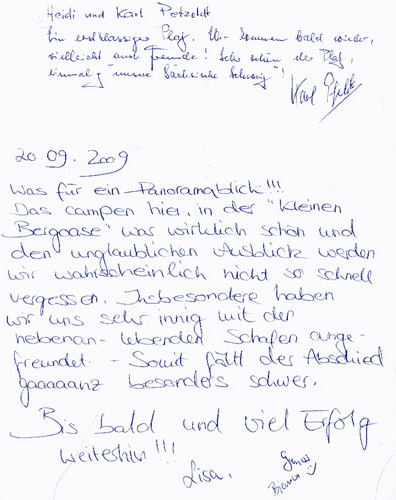 Heidi und Karl Petzoldt
Ein erstklassiger Platz. Wir kommen bald wieder,
vielleicht auch Freunde! Sehr schön der Platz,
einmalig "unsere Sächsische Schweiz"!
Karl
20.09.2009
Was für ein Panoramablick!!!
Das campen hier, in der "kleinen
Bergoase" war wirklich schön und
den unglaublichen Ausblick werden
wir wahrscheinlich nicht so schnell
vergessen. Insbesondere haben
wir uns sehr innig mit den
nebenan-lebenden Schafen ange-
freundet. - Somit fällt der Abschied
gaaaaanz besonders schwer.
Bis bald und viel Erfolg
weiterhin!!!
Lisa.